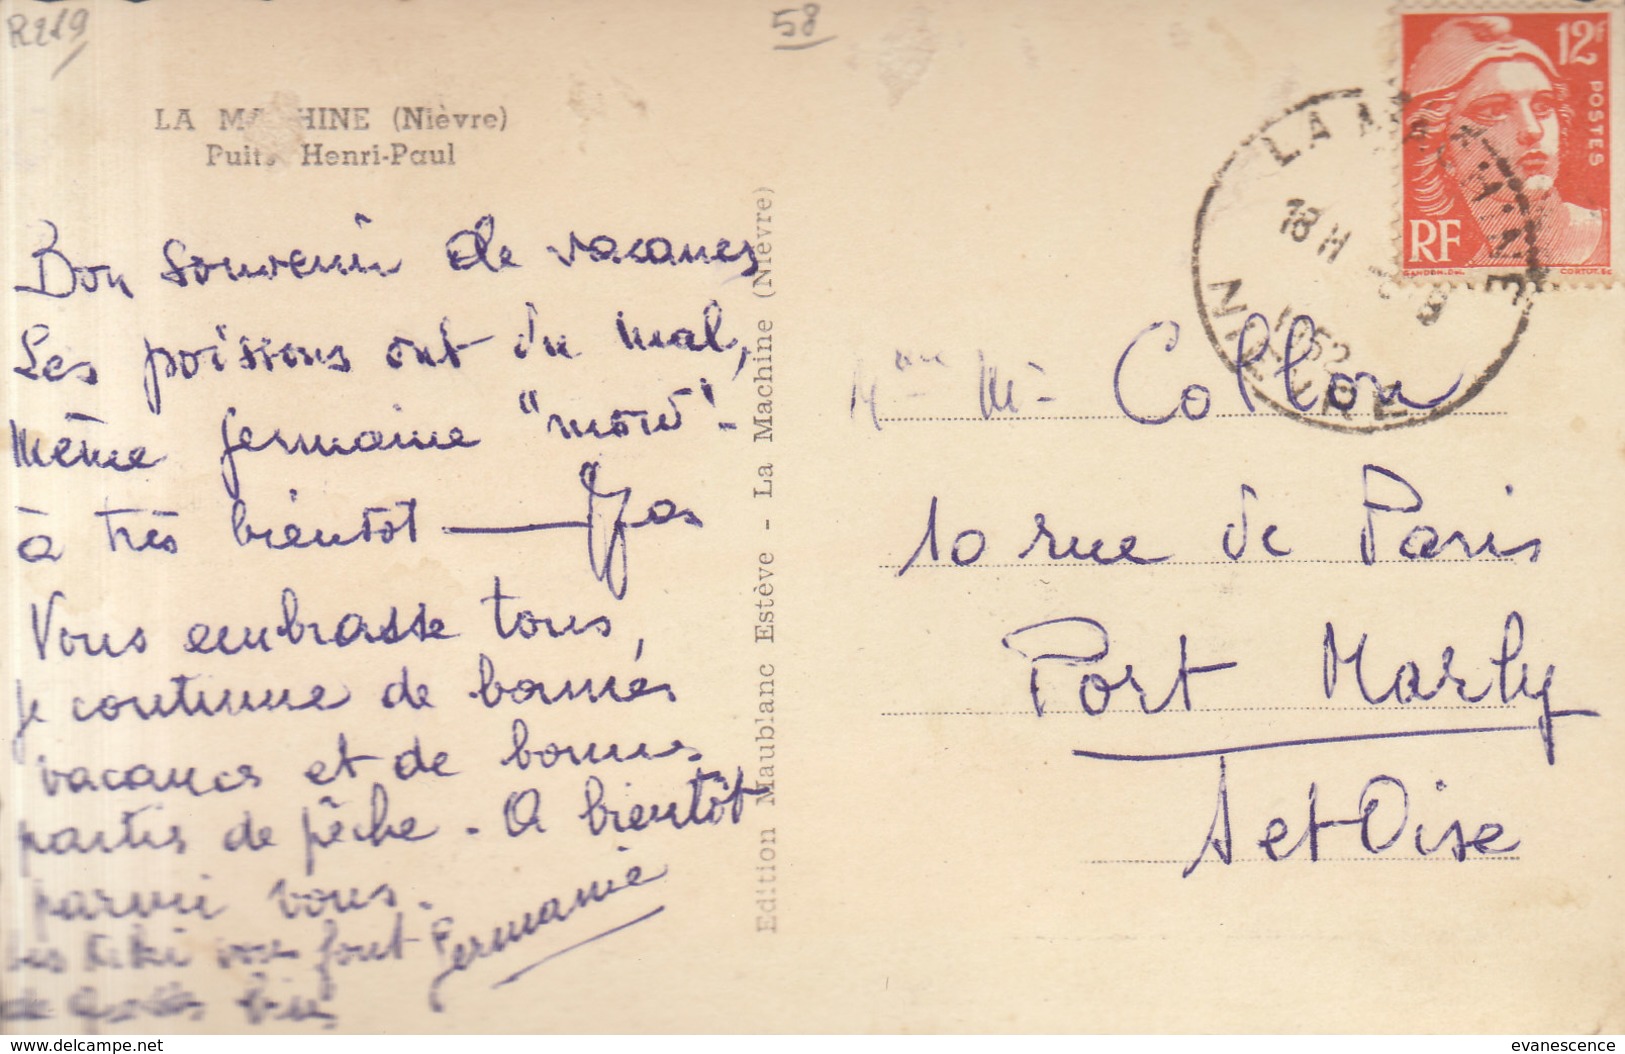 R219
58
LA MACHINE (Nièvre)
Puits Henri-Paul
Bon souvenir de vacances
Les poissons ont du mal,
même Germaine "mord" -
à très bientôt — Jas
Vous embrasse tous,
je continue de bonnes
vacances et de bonnes
parties de pêche. A bientôt
parmi vous.
Germaine
Les Kiki vous font
de bises
Edition Maublanc Estève - La Machine (Nièvre)
12F
POSTES
RF
GANDON.DEL.
CORTOT.SC
LA MACHINE
18 H
1952
NIEVRE
Mme Mr Collon
10 rue de Paris
Port Marly
S et Oise
delcampe.net
evanescence